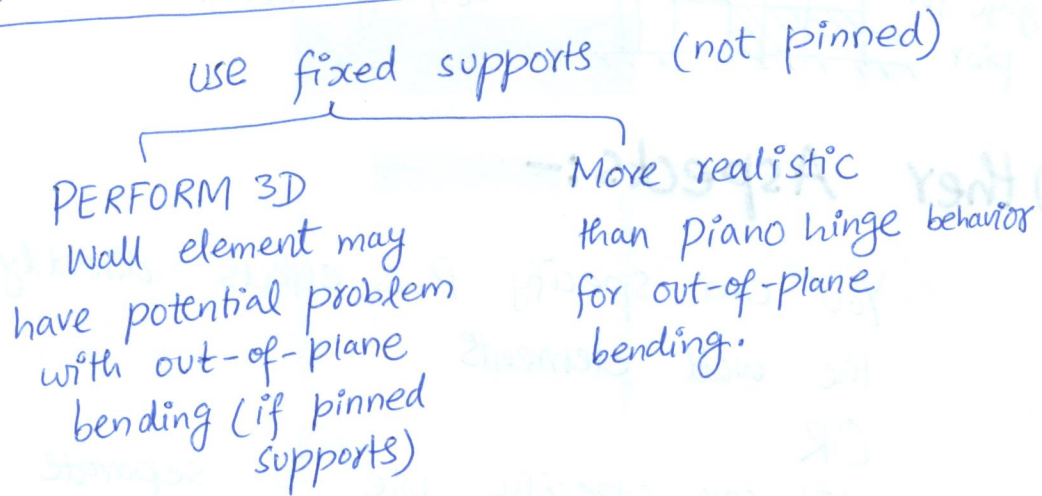 use fixed supports (not pinned)
PERFORM 3D
Wall element may
have potential problem
with out-of-plane
bending (if pinned
supports)
More realistic
than piano hinge behavior
for out-of-plane
bending.